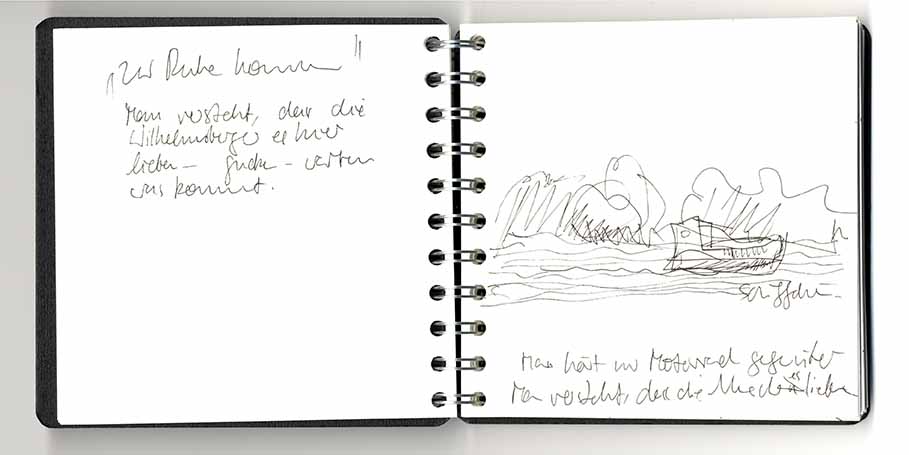 "Zur Ruhe kommen"
Man versteht, dass die
Wilhelmsburger es hier
lieben – gucken – warten
was kommt.
Schiffchen
Man hört nur Motorrad gegenüber
Man versteht, dass die es lieben